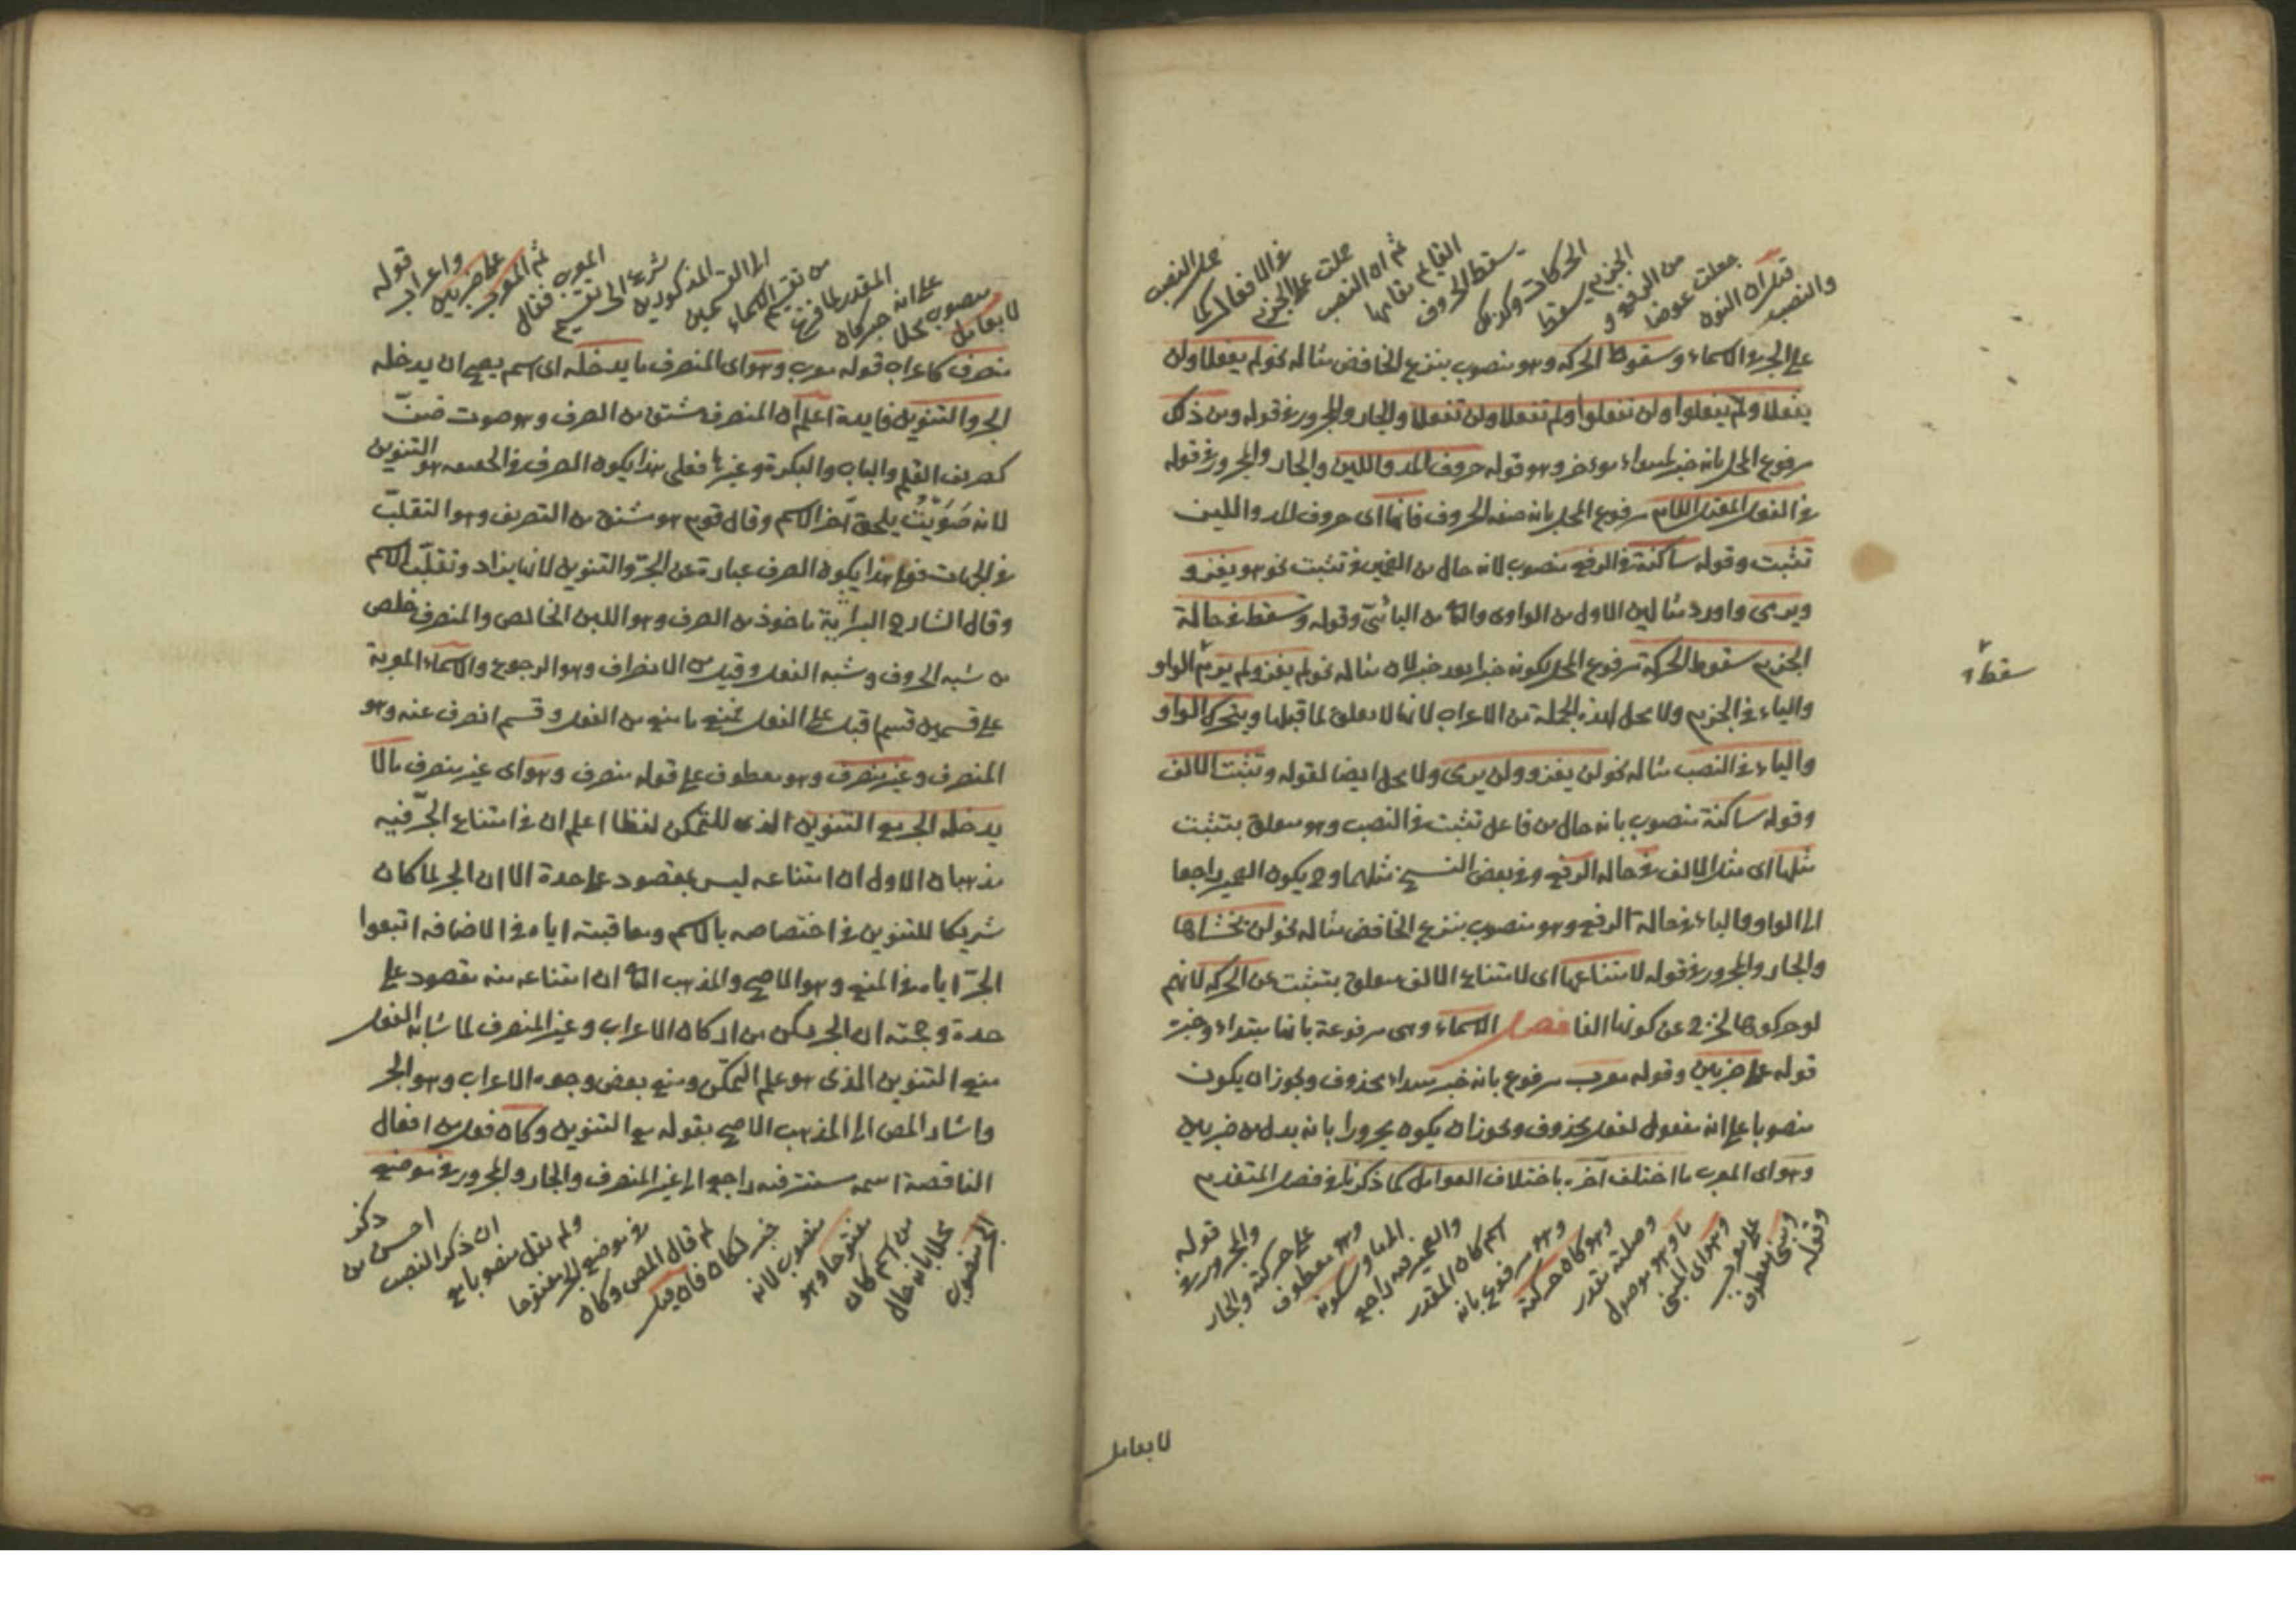 والنصب
قيل ان النون
جعلت عوضا
من الرفع و
الجزم يسقط
الحركات وكذلك
يسقط الحروف
القائم مقامها
ثم ان النصب
حملت على الجزم
في الافعال كما
حمل النصب
على الجر في الاسماء وسقوط الحركة وهو منصوب بنزع الخافض مثاله نحو لم يفعلا ولن
يفعلا ولم يفعلوا ولن تفعلوا ولم تفعلا ولن تفعلا والجار والمجرور في قوله ومن ذلك
مرفوع المحل بانه خبر لمبتداء مؤخر وهو قوله حروف المد واللين والجار والمجرور في قوله
في الفعل المعتل اللام مرفوع المحل بانه صفة الحروف فانها اى حروف المد واللين
تثبت وقوله ساكنة في الرفع منصوب لانه حال من الضمير في تثبت نحو هو يغزو
ويرمى واورد مثالين الاول من الواوى والثانى من اليائى وقوله وتسقط في حالة
الجزم سقوط الحركة مرفوع المحل لكونه خبرا بعد خبر لان مثاله نحو لم يغز ولم يرم الواو
والياء في الجزم ولا محل لهذه الجملة من الاعراب لانها لا تعلق لما قبلها ويتحرك الواو
والياء في النصب مثاله نحو لن يغزو ولن يرمى ولا محل ايضا لقوله وتثبت الالف
وقوله ساكنة منصوب بانه حال من فاعل تثبت في النصب وهو متعلق بتثبت
مثلها اى مثل الالف في حالة الرفع وفي بعض النسخ مثلهما وح يكون الضمير راجعا
الى الواو والياء في حالة الرفع وهو منصوب بنزع الخافض مثاله نحو لن يخشاها
والجار والمجرور في قوله لامتناعها اى لامتناع الالف متعلق بتثبت عن الحركة لانهم
لو حركوها لخرج عن كونها الفا فصل الاسماء وهى مرفوعة بانها مبتداء وخبره
قوله على ضربين وقوله معرب مرفوع بانه خبر مبتداء محذوف ويجوز ان يكون
منصوبا على انه مفعول لفعل محذوف ويجوز ان يكون مجرورا بانه بدل من ضربين
وهو اى المعرب ما اختلف آخره باختلاف العوامل كما ذكرنا في فصل المتقدم
وقوله
ومبنى معطوف
على معرب
وهو اى المبنى
ما وهو موصول
وصلته مقدر
وهو كان حركته
وهو مرفوع بانه
اسم كان المقدر
والضمير فيه راجع
الى ما وسكونه
وهو معطوف
على حركته والجار
والمجرور في
قوله
لا بعامل
سقط
لا بعامل
منصوب محلا
على انه خبر كان
المقدر لما فرغ
من تقسيم الاسماء
الى القسمين
المذكورين
شرع الى تقسيم
المعرب فقال
ثم المعرب
على ضربين
واعراب
قوله
منصرف كاعراب قوله معرب وهو اى المنصرف ما يدخله اى اسم يصح ان يدخله
الجر والتنوين فايدة اعلم ان المنصرف مشتق من الصرف وهو صوت
كصريف القلم والباب والبكرة وغيرها فعلى هذا يكون الصرف في الحقيقة هو التنوين
لانه صُوَيْت يلحق آخر الاسم وقال قوم هو مشتق من التصريف وهو التقلب
في الجهات فعلى هذا يكون الصرف عبارة عن الجرّ والتنوين لانها يزاد وتقلب الاسم
وقال الشارح مأخوذ من الصرف وهو اللبن الخالص والمنصرف خلص
من شبه الحروف وشبه الفعل وقيل من الانصراف وهو الرجوع والاسماء المعربة
على قسمين قسم اقبل على الفعل فمنع ما منع من الفعل وقسم انصرف عنه وهو
المنصرف وغير منصرف وهو معطوف على قوله منصرف وهو اى غير منصرف ما لا
يدخله الجر مع التنوين الذى للتمكن لفظا اعلم ان في امتناع الجرّ فيه
مذهبان الاول ان امتناعه ليس بمقصود على حدة الا ان الجر لما كان
شريكا للتنوين في اختصاصه بالاسم ومعاقبته اياه في الاضافه اتبعوا
الجرّ اياه في المنع وهو الاصح والمذهب الثانى ان امتناعه منه مقصود على
حدة وحجته ان الجر يمكن من اركان الاعراب وغير المنصرف لما شابه الفعل
منع التنوين الذى هو علم التمكّن ومنع بعض وجوه الاعراب وهو الجر
واشار المص الى المذهب الاصح بقوله مع التنوين وكان فعل من افعال
الناقصة اسمه مستتر فيه راجع الى غير المنصرف والجار والمجرور في موضع
الجر منصوب
محلا بانه حال
من اسم كان
مفتوحا وهو
منصوب لانه
خبر لكان فان قيل
لم قال المص وكان
في موضع الجر مفتوحا
ولم يقل منصوبا مع
ان ذكر النصب
احسن من
ذكر